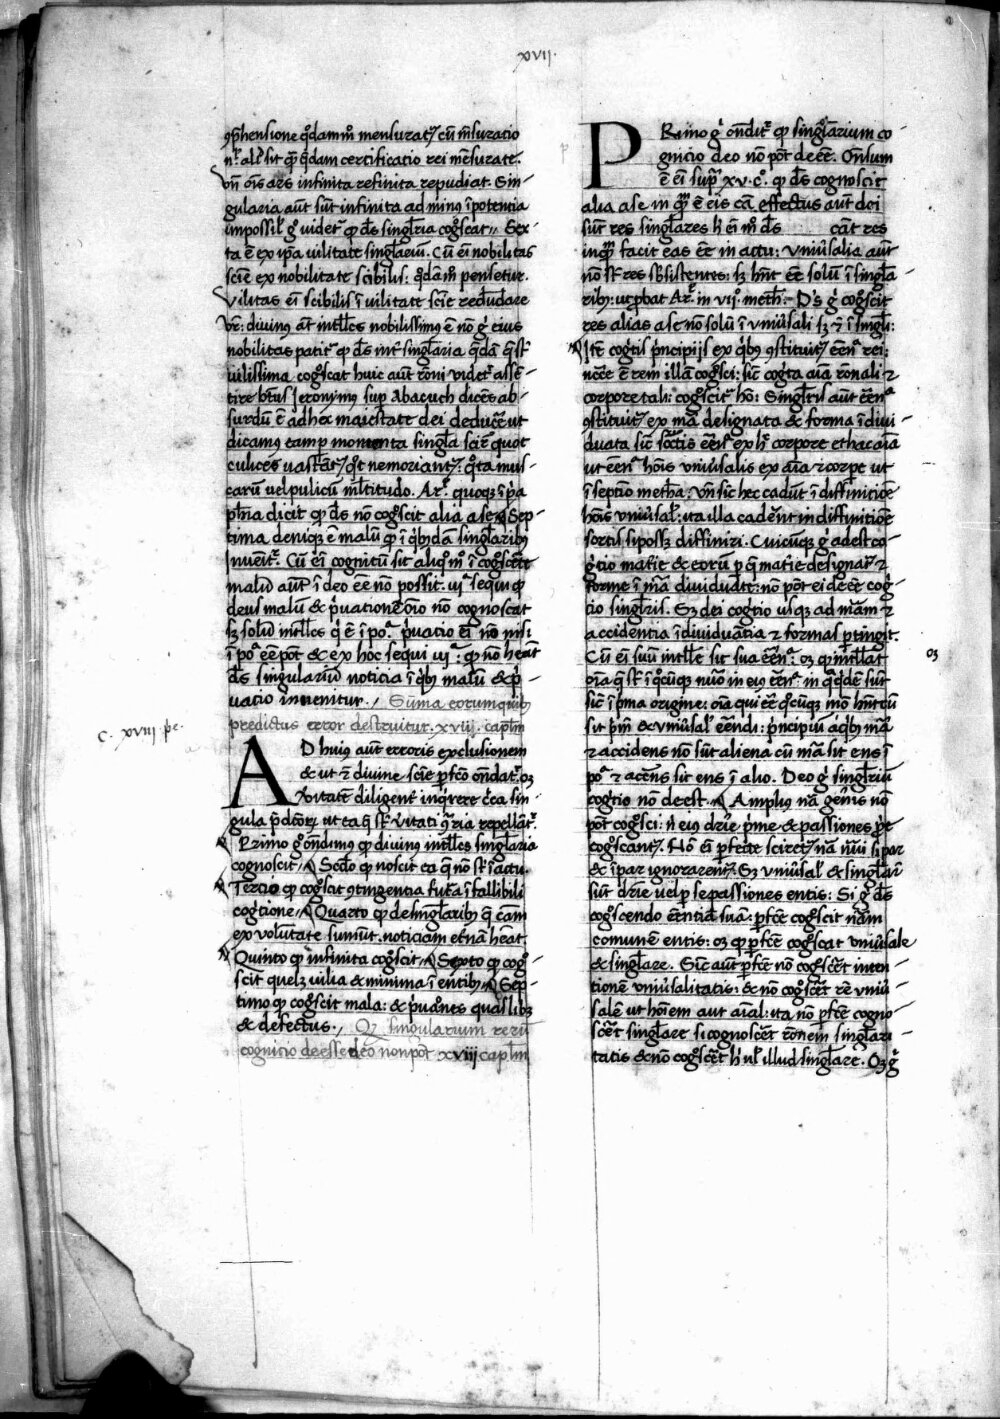 xvii.
ꝯp̄hensione q̄dam̄ mensurat᷑ cū m̄suratio
nł aľ sit qͣ q̄dam certificatio rei mēsurate.
Vn̄ oīs ars infinita refinita repudiat. Sin-
gularia aūt sūt infinita ad minus ī potentia
impossil' gͦ videt᷑ ꝙ ds̄ singl̄ria cogͦscat. Sex-
ta ē ex ip̄a uilitate singl̄arium. Cū eī nobilitas
sciē ex nobilitate scibilis: q̄dam̄ pensetur.
Vilitas eī scibilis ī uilitate sciē redūdare
vr̄: diuinus āt intl̄les nobilissimus ē nō gͦ eius
nobilitas patit᷑ ꝙ ds̄ int᷑ singl̄aria q̄dā q̄ sť
uilissima cogͦscat huic aūt rōni videt᷑ assē-
tire btūs Jeronimus sup Abacuch dicēs ab-
surdū ē adhec maiestate dei deducēe ut
dicamus eam ꝑ momenta singl̄a scir̄ quot
culices nascāt᷑ qͦt ne moriant᷑: qͦta mus-
carū uel pulicum ml̄titudo. Ar̄. quoqꝫ ī pͥa
ph̄ia dicit ꝙ ds̄ nō cogͦscit alia a se. Sep-
tima deniqꝫ ē malū ꝙ ī q̄bꝫdā singl̄aribꝫ
Inuēit᷑. Cū eī cognitū sit aliqͦ mͦ ī cogͦscēte
malū aūt ī deo eē nō possit. vr̄ sequi ꝙ
deus malū & pͥuationē oīo nō cognoscat
sꝫ solū intl̄les qͥ ē ī poͣ. pͥuatio eī nō nisi
ī poͣ eē pōt & ex hoc sequi vr̄ ꝙ nō heāt
ds̄ singularium noticia ī qͥbꝫ malū & pͥ-
uatio inuenitur. Sūma eorum quibꝫ
predictus error destruitur. xviii. capl̄m
c. xviii pͤ.
AD huius aūt erroris exclusionem
& ut ꝛ diuine sciē ꝑfcō ōndat᷑. oꝫ
v̄itatē diligent᷑ inqͥrere cͥca sin-
gula pͥdcōꝝ ut ea q̄ sť v̄itati ꝯͣria repellāt᷑.
Primo gͦ ōndimus ꝙ diuinus intl̄les singl̄aria
cognoscit. Scd̄o ꝙ noscit ea q̄ nō sť ī actu.
Tercio ꝙ cogͦscit ꝯtingentia futͣa ī fallibili
cogͥtione. Quarto ꝙ de singl̄aribꝫ q̄ cām
ex volūtate sumūt. noticiam etnā heāt.
Quinto ꝙ infinita cogͦscit. Sexto ꝙ cogͦ-
scit quelꝫ uilia & minima ī entibꝫ. Sep-
timo ꝙ cogͦscit mala: & pͥuatōes quaslibꝫ
& defectus. Qꝫ singularium rerū
cognicio deesse deo non pōt xviii capl̄m
PRimo gͦ ōndit᷑ ꝙ singl̄arium co-
gnicio deo nō pōt deeē. Ōnsum
ē eī supͣ xv. cͦ. ꝙ ds̄ cognoscit
alia a se in qͣꝫ ē eis cā. effectus aūt dei
sūt res singl̄ares h̄ eī mͦ ds̄ cāt res
inqͣꝫ facit eas eē in actu: vniuͤsalia aūt
nō sť res sb̄sistentes: sꝫ hn̄t eē solū ī singl̄a-
ribꝫ: ut ꝓbat Ar̄. in vii. meth̄. Ds̄ gͦ cogͦscit
res alias a se nō solū ī vniuͤsali sꝫ ꝛ ī singl̄i:
Itē cogͥtis pͥncipijs ex qͥbꝫ ꝯstituit᷑ eēnͣ rei:
ncc̄e ē rem illā cogͦsci: sic̄ cogͥta aīa rōnali ꝛ
corpore tali: cogͦscit᷑ hō: Singl̄ris aūt eēnͣ
ꝯstituit᷑ ex mā designata & forma ī diui-
duata sic̄ socͣtis eēnͣ ex hͦ corpore et hac aīa
ut eēnͣ hoīs vniuͤsalis ex aīa ꝛ corpe ut
ī septio meth̄a: vn̄ sic̄ hec cadūt ī diffinitiōe
hoīs vniuͤsal': ita illa caderēt in diffinitiōe
sortis si possꝫ diffiniri. Cuicūqꝫ gͦ adest co-
gͥtio matīe & eorū ꝑ q̄ matīe designat᷑ ꝛ
forme ī mā diuiduāte: nō pōt ei deeē cogͥ-
tio singl̄ris. Sꝫ dei cogͥtio usqꝫ ad mām ꝛ
accidentia īdiuiduātia ꝛ formas ꝑtingit.
Cū eī suū intl̄le sit sua eēnͣ. oꝫ ꝙ intl̄lāt
oꝫ
oīa q̄ sť ī qͦcūqꝫ mͦ in eius eēnͣ: in qͣ qͥdē sūt
sic̄ ī pͥma origine. oīa qui eē qͦcūqꝫ mō hn̄t cū
sit pͥm̄ & vniuͤsal' eēndi: pͥncipiū a qͥbꝫ mā
ꝛ accidens nō sūt aliena cū mā sit ens ī
poͣ ꝛ accn̄s sit ens ī alio. Deo gͦ singl̄riū
cogͥtio nō deest. Amplius nā gen̄is nō
pōt cogͦsci: ň eius drīe pͥme & passiones ꝑ se
cogͦscant᷑. Nō eī ꝑfecte sciret᷑ nā nūi si par
& īpar ignorarent᷑. Sꝫ vniuͤsal' & singl̄ar̄
sūt drīe uel ꝑ se passiones entis: Si gͦ ds̄
cogͦscendo eēntiā suā: ꝑfcē cogͦscit nām
comunē entis: oꝫ ꝙ ꝑfcē cogͦscat vniuͤsale
& singl̄are. Sic̄ aūt ꝑfcē nō cogͦscēt inten-
tionē vniuͤsalitatis: & nō cogͦscēt rē vniuͤ-
salē ut hoīem aut aīal: ita nō ꝑfcē cogno-
scēt singl̄are si cognoscēt rōnem singl̄ari-
tatis & nō cogͦscēt hͦ ul' illud singl̄are. Oꝫ gͦ